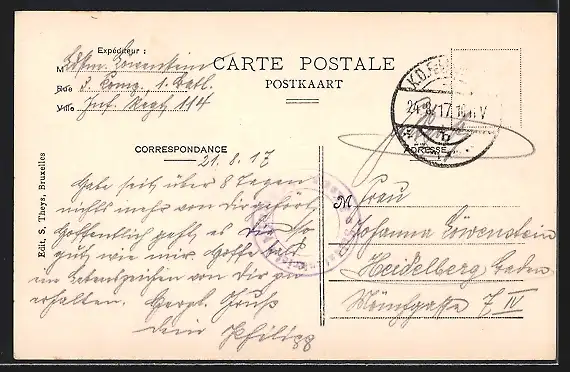 Expéditeur :
M Ldstm. Löwenstein
Rue 3. Komp., 1. Batl.
Ville Inf. Regt. 114
CARTE POSTALE
POSTKAART
24 8 17
CORRESPONDANCE
ADRESSE
21.8.17
Habe seit über 8 Tagen
nichts mehr von Dir gehört
Hoffentlich geht es Dir so
gut wie mir. Hoffe bald
ein Lebenszeichen von Dir zu
erhalten. Herzl. Gruß
Dein Philipp
M Frau
Johanna Löwenstein
Heidelberg Baden
7 IV
Edit. S. Theys, Bruxelles